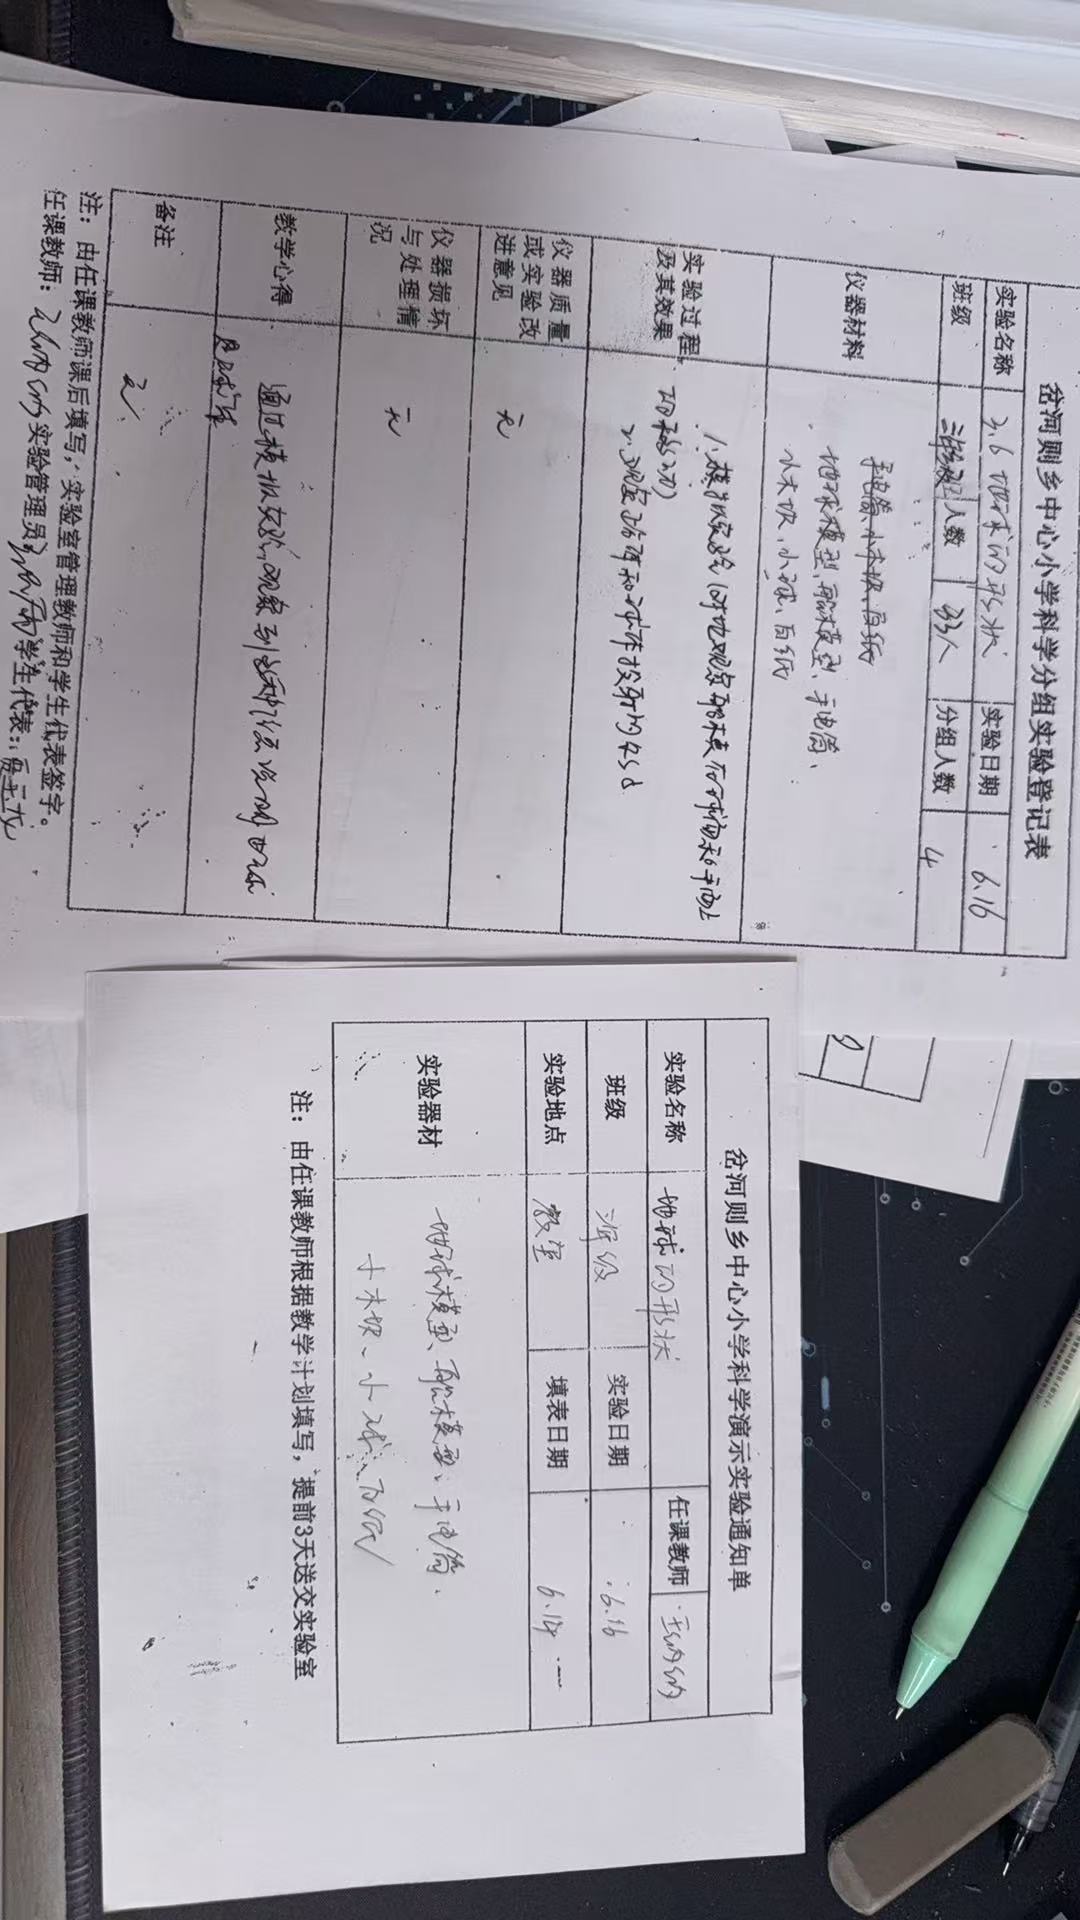 岔河则乡中心小学科学分组实验登记表
实验名称 2.6 地球的形状 实验日期 6.16
班级 人数 33人 分组人数 4
仪器材料 手电筒、小木板、白纸
地球模型、船模型、手电筒、
小木块、小球、白纸
实验过程及其效果 1.模拟实验(对比观察船模在球面和平面上
的移动)
2.观察
仪器质量或实验改进意见 无
仪器损坏与处理情况 无
教学心得 通过模拟实验,观察到
是球体
备注 无
注:由任课教师课后填写,实验室管理教师和学生代表签字。
任课教师: 实验管理员: 学生代表:
岔河则乡中心小学科学演示实验通知单
实验名称 地球的形状 任课教师
班级 三年级 实验日期 6.16
实验地点 教室 填表日期 6.14
实验器材 地球模型、船模型、手电筒、
小木块、小球、白纸
注:由任课教师根据教学计划填写,提前3天送交实验室